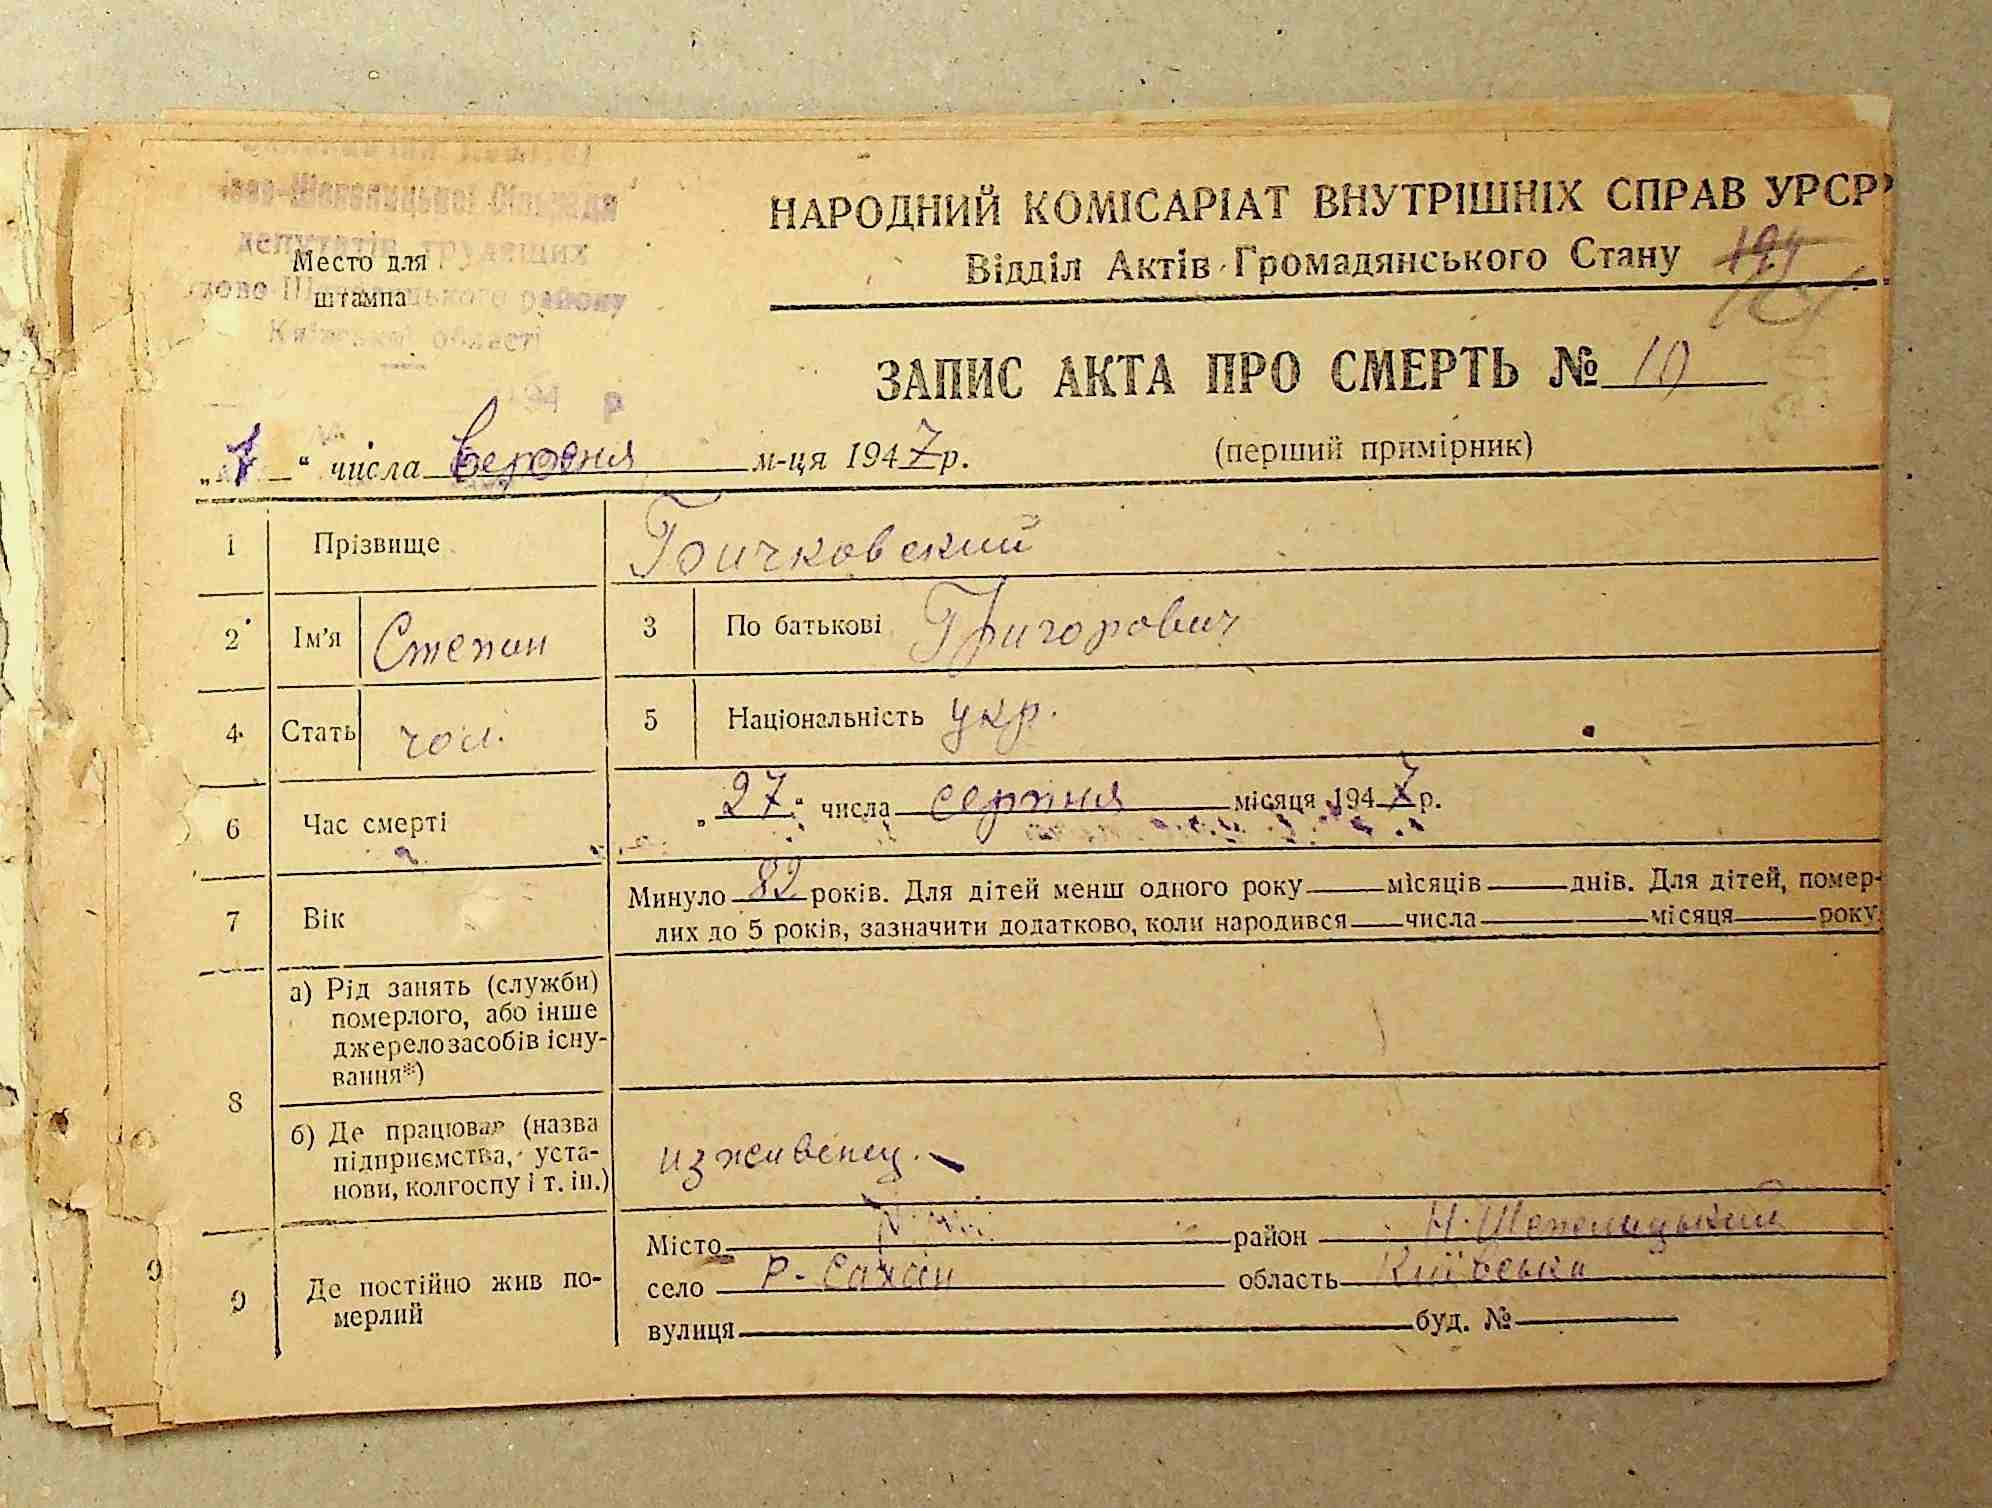 НАРОДНИЙ КОМІСАРІАТ ВНУТРІШНІХ СПРАВ УРСР
Відділ Актів Громадянського Стану
депутатів трудящих
району
Київської області
Место для
штампа
194 р
ЗАПИС АКТА ПРО СМЕРТЬ № 10
"7" числа Серпня м-ця 1947 р.
(перший примірник)
1 Прізвище Бичковский
2 Ім'я Степан 3 По батькові Григорович
4 Стать чол. 5 Національність укр.
6 Час смерті "27" числа серпня місяця 1947 р.
7 Вік Минуло 82 років. Для дітей менш одного року місяців днів. Для дітей, помер-
лих до 5 років, зазначити додатково, коли народився числа місяця року
8 а) Рід занять (служби)
померлого, або інше
джерело засобів існу-
вання*)
б) Де працював (назва
підприємства, уста-
нови, колгоспу і т. ін.)
изживенец.
9 Де постійно жив по-
мерлий
Місто район Н-Шепелицький
село Р-Сахан область Київська
вулиця буд. №
9